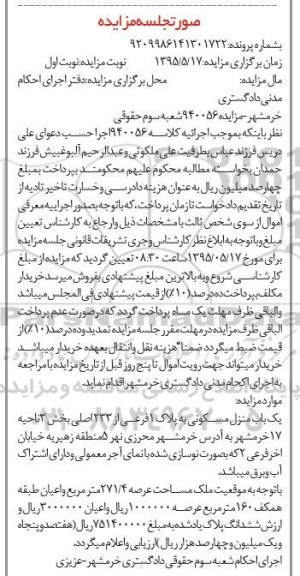 صورتجلسه مزایده
بشماره پرونده:۹۲۰۹۹۸۶۱۴۱۳۰۱۷۲۲
زمان برگزاری مزایده:۱۳۹۵/۵/۱۷ نوبت مزایده:نوبت اول
مال مزایده: محل برگزاری مزایده:دفتر اجرای احکام
مدنی دادگستری
خرمشهر-مزایده ۹۴۰۰۵۶شعبه سوم حقوقی
نظر باینکه بموجب اجرائیه کلاسه ۹۴۰۰۵۶اجرا حسب دعوای علی
دریس فرزند عباس بطرفیت علی ملکوتی و عبدالرحیم آلبوغبیش فرزند
حمدان بخواسته مطالبه محکوم علیهم محکومند بپرداخت بمبلغ
چهارصد میلیون ریال به عنوان هزینه دادرسی و خسارت تاخیر تادیه از
تاریخ تقدیم دادخواست تا زمان پرداخت،که باتوجه بصدور اجراییه معرفی
اموال از سوی شخص ثالث با مشخصات ذیل و ارجاع به کارشناس تعیین
مبلغ و باتوجه به ابلاغ نظر کارشناس و جری تشریفات قانونی جلسه مزایده
برای مورخ ۱۳۹۵/۰۵/۱۷ساعت ۰۸:۳۰ تعیین گردید که مزایده از مبلغ
کارشناسی شروع و به بالاترین مبلغ پیشنهادی بفروش میرسد خریدار
مکلف بپرداخت ده درصد(۱۰٪)از قیمت پیشنهادی فی المجلس میباشد
والباقی ظرف مهلت یک ماه پرداخت گردد که درصورت عدم پرداخت
الباقی ظرف مزایده در مهلت مقرر جلسه مزایده تمدید و ده درصد(۱۰٪)از
قیمت ضبط میگردد ضمنا"هزینه نقل وانتقال بعهده خریدار میباشد
خریدار میتواند جهت رویت اموال تا پنج روز قبل از تاریخ مزایده با مراجعه
به اجرای احکام مدنی دادگستری خرمشهر اقدام نماید.
موارد مزایده:
یک باب منزل مسکونی به پلاک ۱فرعی از ۲۳۳اصلی بخش ۳ناحیه
۱۷خرمشهر به آدرس خرمشهر محرزی نهر ۵منطقه زهیریه خیابان
اخر فرعی ۲که بصورت نوسازی شده با نمای آجر معمولی و دارای اشتراک
آب و برق میباشد.
باتوجه به موقعیت ملک مساحت عرصه ۲۷۱/۴متر مربع واعیان طبقه
همکف ۱۶۰متر مربع عرصه ۱۰۰۰۰۰۰ریال واعیان ۳۰۰۰۰۰۰ریال و
ارزش ششدانگ پلاک یادشده به مبلغ ۷۵۱۴۰۰۰۰۰ریال(هفتصد وپنجاه
ویک میلیون و چهارصد هزار ریال)ارزیابی و اعلام میگردد.
اجرای احکام شعبه سوم حقوقی دادگستری خرمشهر-عزیزی